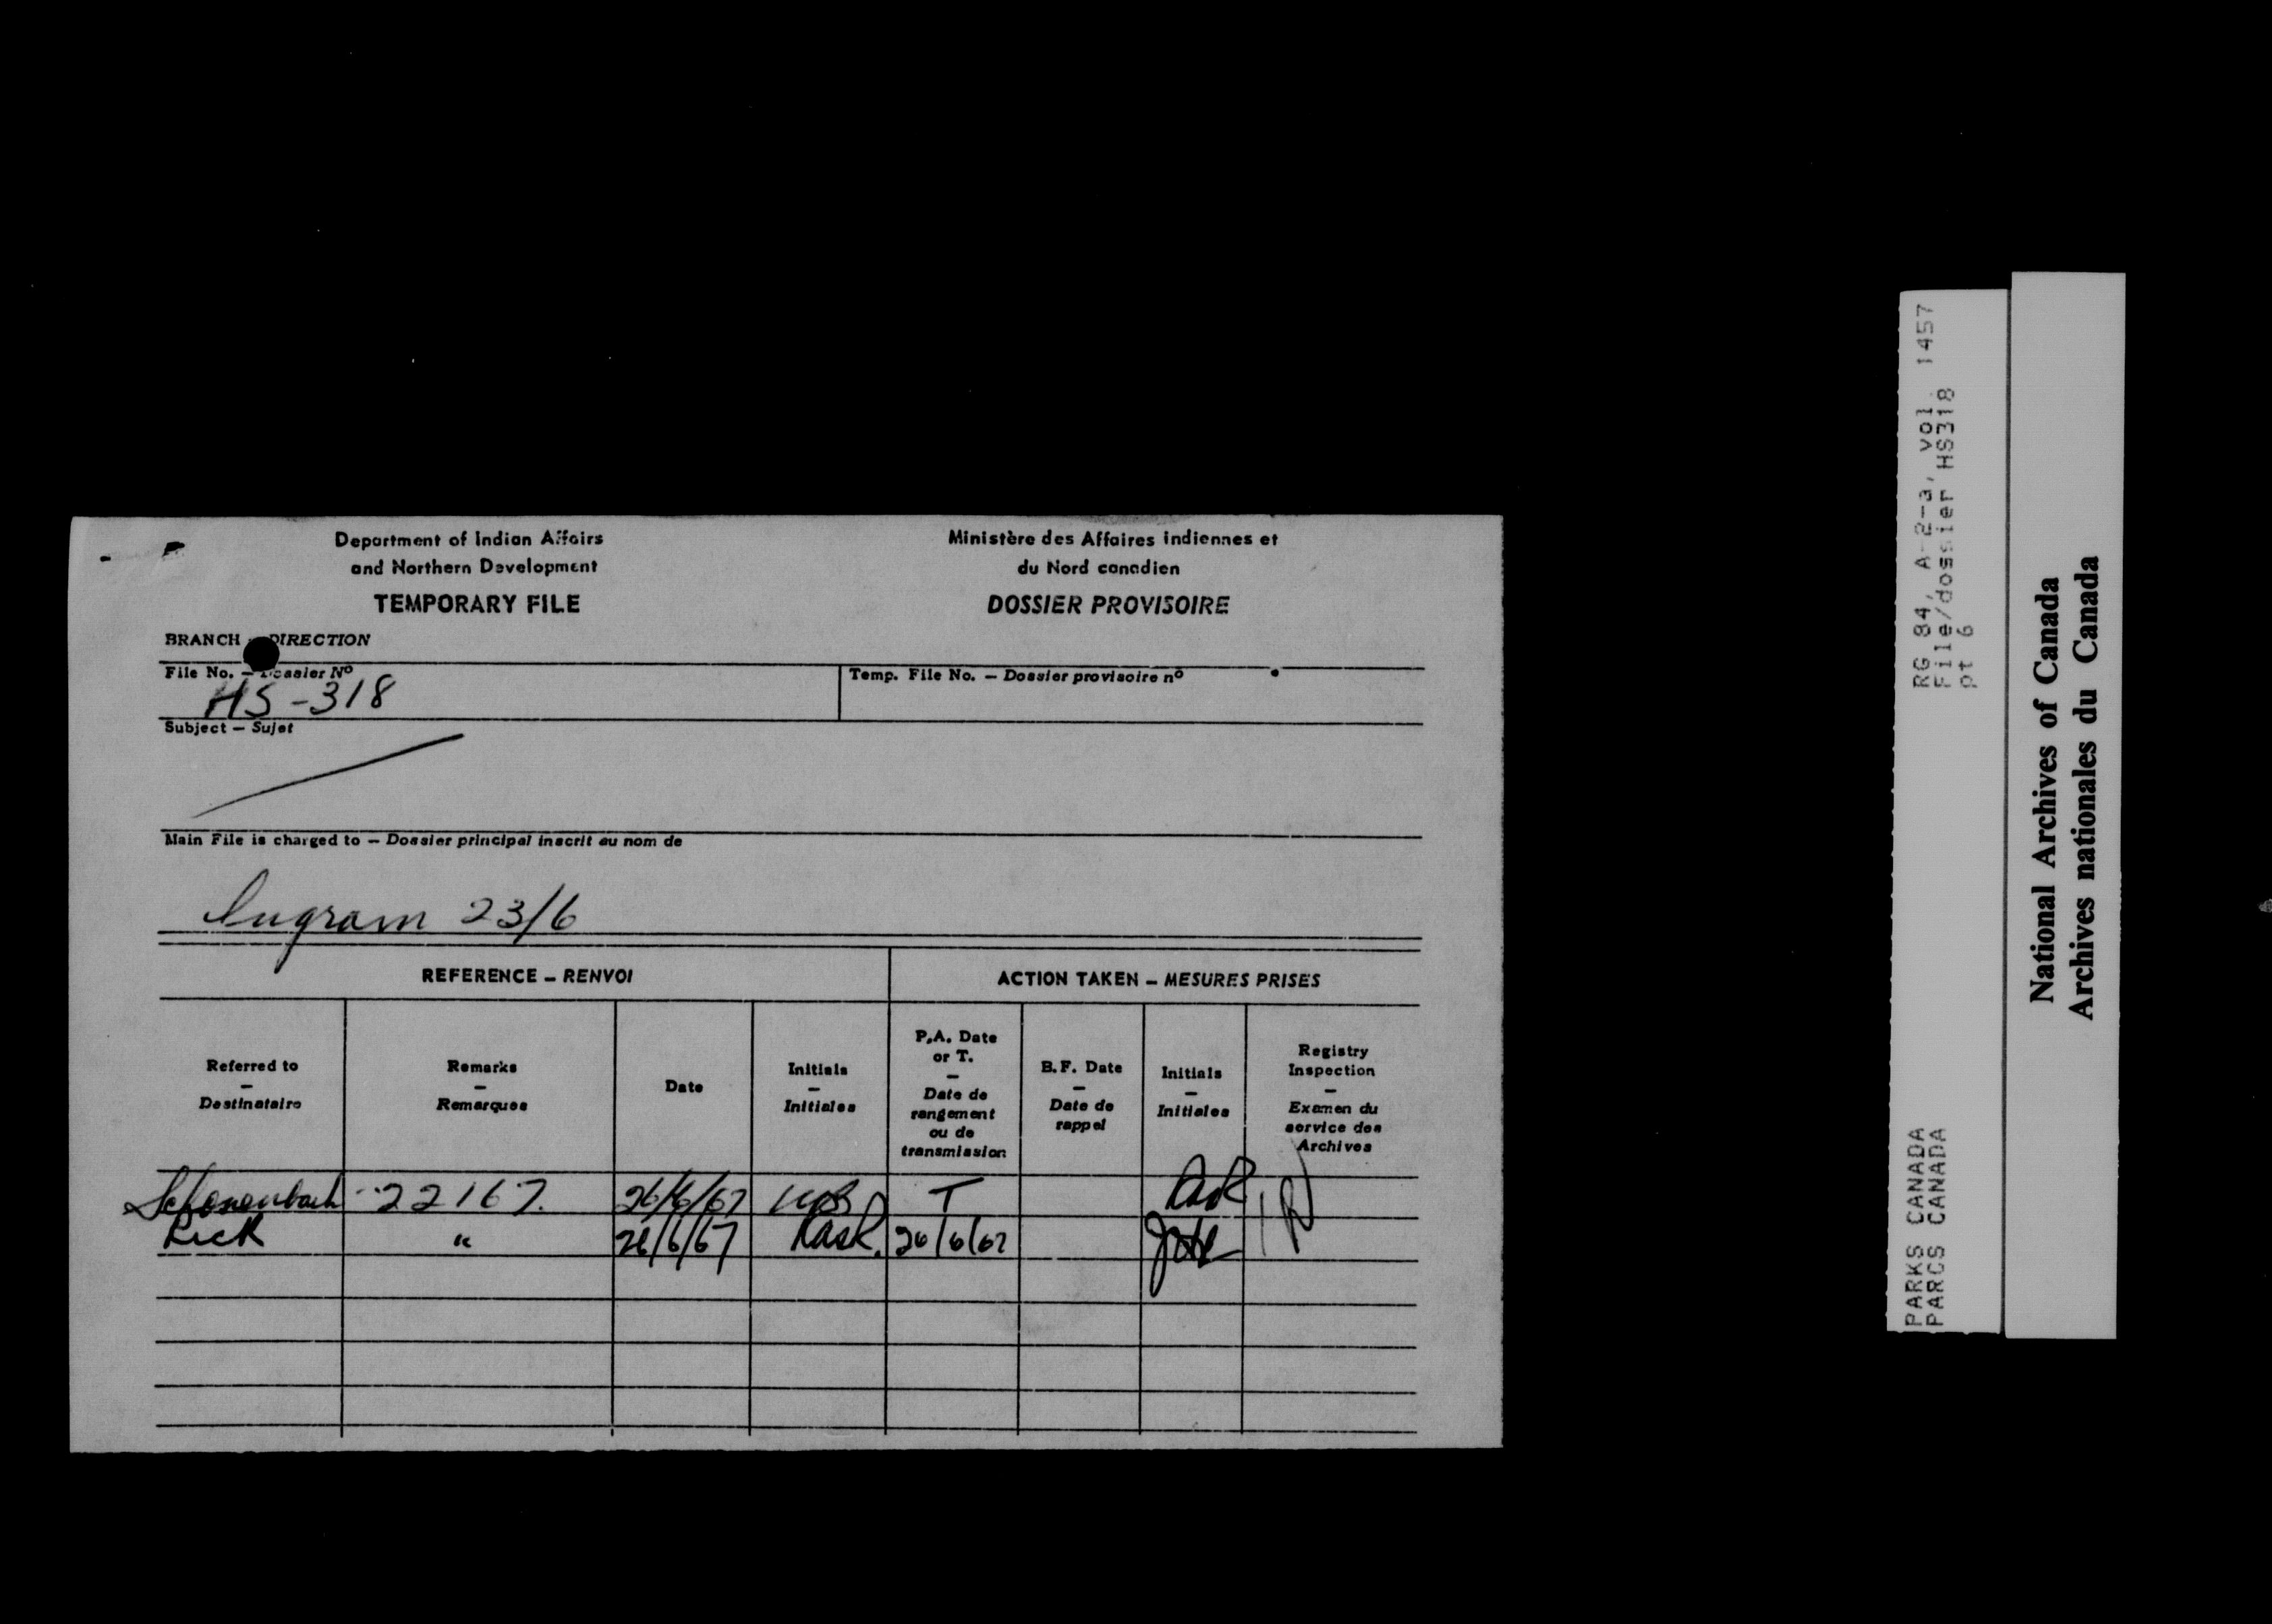 Department of Indian Affairs
and Northern Development
TEMPORARY FILE
Ministère des Affaires indiennes et
du Nord canadien
DOSSIER PROVISOIRE
BRANCH - DIRECTION
File No. – Dossier Nº
HS-318
Temp. File No. – Dossier provisoire nº
Subject – Sujet
Main File is charged to – Dossier principal inscrit au nom de
Ingram 23/6
REFERENCE – RENVOI
ACTION TAKEN – MESURES PRISES
Referred to
–
Destinataire
Remarks
–
Remarques
Date
Initials
–
Initiales
P.A. Date
or T.
–
Date de
rangement
ou de
transmission
B.F. Date
–
Date de
rappel
Initials
–
Initiales
Registry
Inspection
–
Examen du
service des
Archives
22167. 26/6/67 T
" 26/6/67 26/6/67
RG 84, A-2-a, vol. 1457
File/dossier HS318
pt 6
PARKS CANADA
PARCS CANADA
National Archives of Canada
Archives nationales du Canada